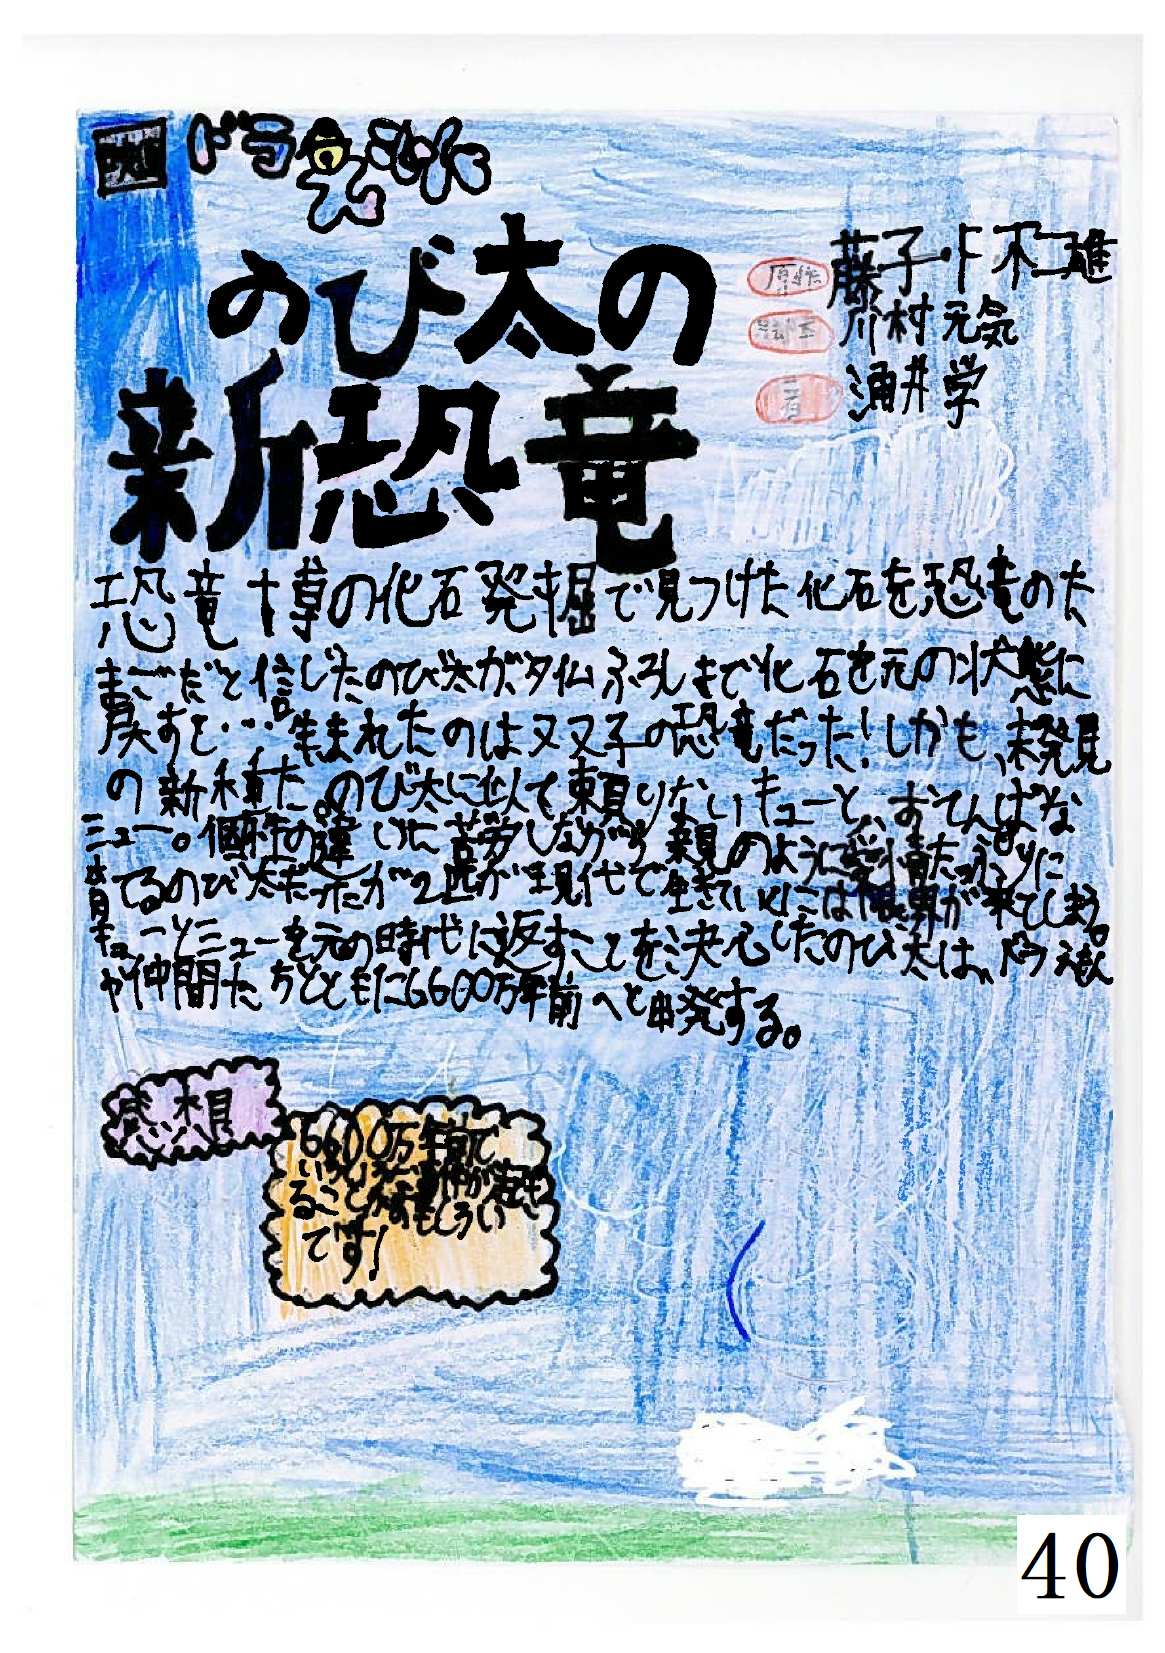 映画
ドラえもん
のび太の
新恐竜
原作 藤子・F・不二雄
脚本 川村元気
著 涌井学
恐竜博の化石発掘で見つけた化石を恐竜のた
まごだと信じたのび太がタイムふろしきで化石を元の状態に
戻すと…生まれたのは双子の恐竜だった!しかも、未発見
の新種だ。のび太に似て頼りないキューと、おてんばな
ミュー。個性の違いに苦労しながら、親のように愛情たっぷりに
育てるのび太だったが2匹が現代で生きていくには限界が来てしまう。
キューとミューを元の時代に返すことを決心したのび太は、ドラえもん
や仲間たちとともに6600万年前へと出発する。
感想
6600万年前で
いろいろな事件が起き
ることがおもしろい
です!
40